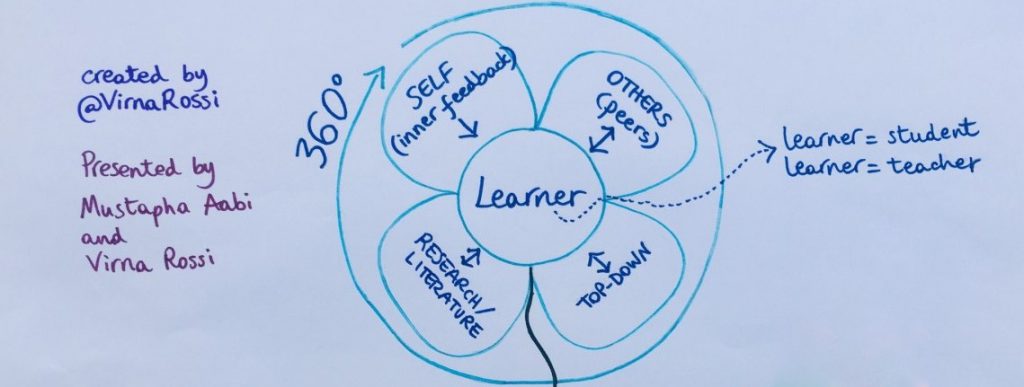 created by
@VirnaRossi
Presented by
Mustapha Aabi
and
Virna Rossi
360°
SELF
(inner feedback)
OTHERS
(peers)
Learner
RESEARCH/
LITERATURE
TOP-DOWN
learner = student
learner = teacher